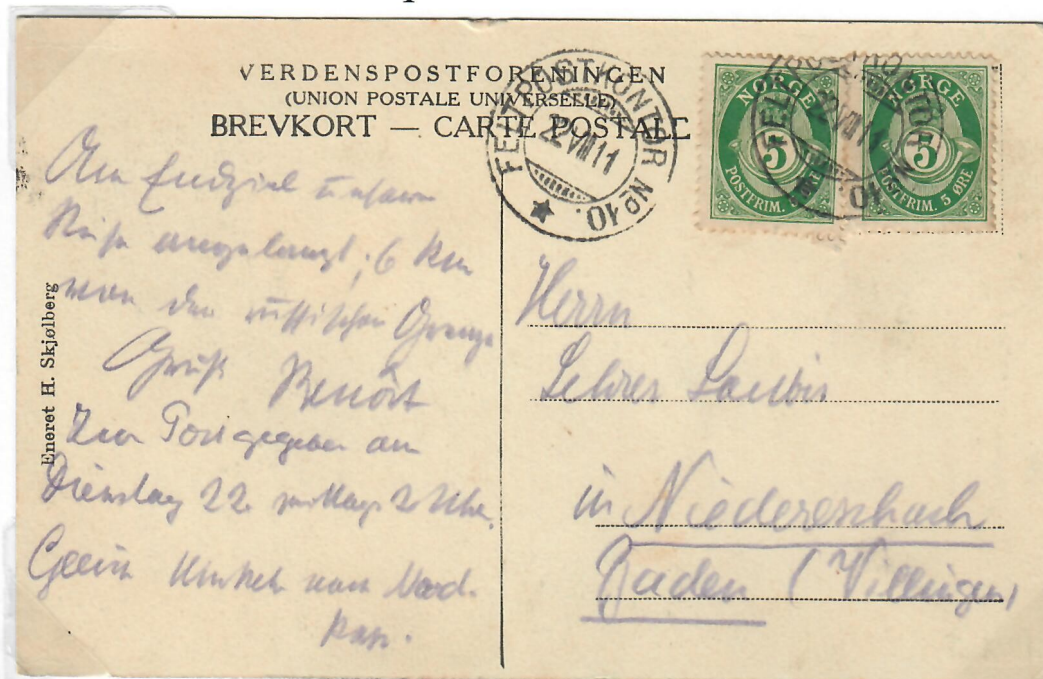 VERDENSPOSTFORENINGEN
(UNION POSTALE UNIVERSELLE)
BREVKORT — CARTE POSTALE
FELTPOSTKONTOR No 10.
22 VIII 11
NORGE
5
POSTFRIM. 5 ØRE
NORGE
5
POSTFRIM. 5 ØRE
FELTPOSTKONTOR No 10.
22 VIII 11
Am Endziel unserer
Reise angelangt; 6 km
von der russischen Grenze
Gruß
Zur Post gegeben am
Dienstag 22. mittags 2 Uhr.
Gleich nach Nord-
kap.
Eneret H. Skjølberg
Herrn
Lehrer
in Niedereschach
Baden (Villingen)